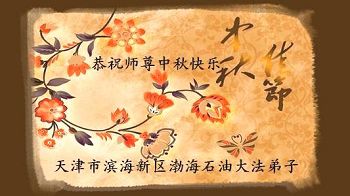 中秋佳節
恭祝师尊中秋快乐
天津市滨海新区渤海石油大法弟子